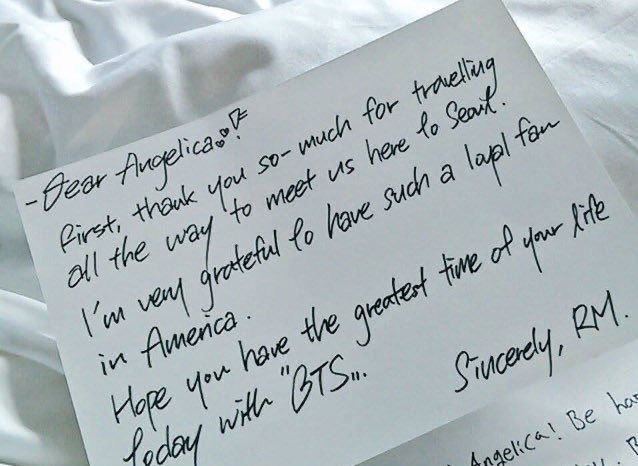 - Dear Angelica..!
First, thank you so-much for travelling
all the way to meet us here to Seoul.
I'm very grateful to have such a loyal fan
in America.
Hope you have the greatest time of your life
today with "BTS...
Sincerely, RM.
Angelica! Be ha